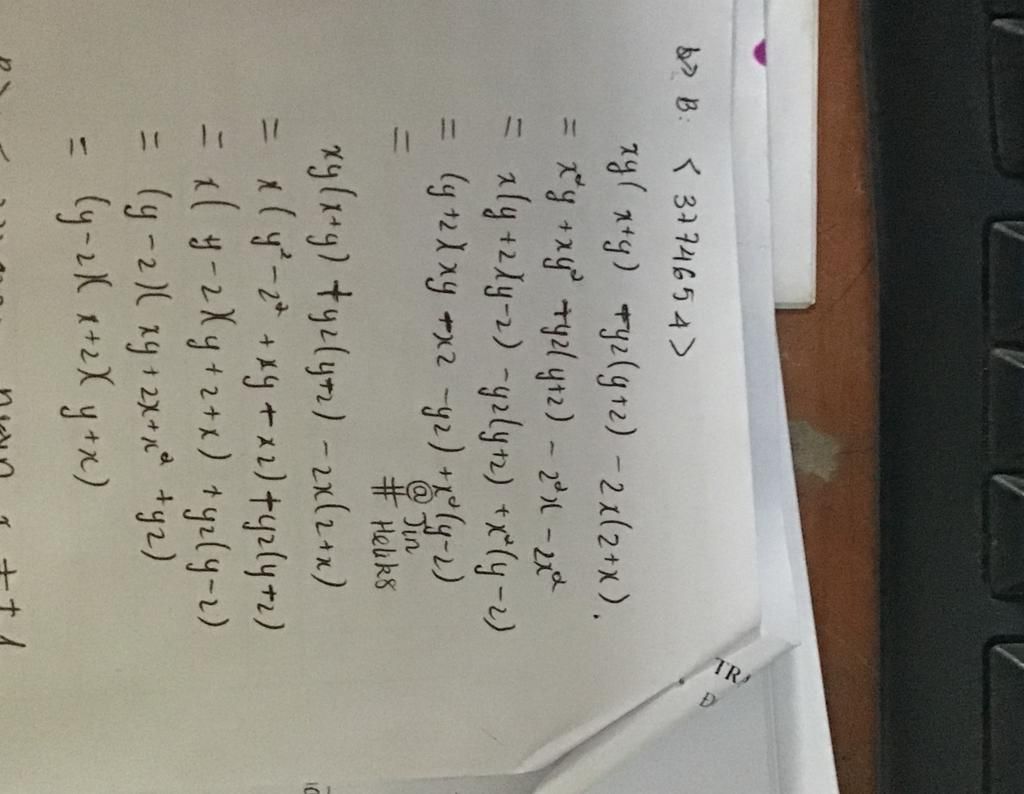 b> B: < 377465A >
xy( x+y) +yz(y+z) - zx(z+x).
= x²y + xy² +yz(y+z) - z²x - zx²
= x(y+z)(y-z) -yz(y+z) + x²(y-z)
= (y+z)(xy +xz -yz) + x²(y-z)
=
@ Jin
# Heli
xy(x+y) + yz(y+z) - zx(z+x)
= x( y² - z² + xy + xz) + yz(y+z)
= x( y-z)(y+z+x) + yz(y-z)
= (y-z)( xy + zx + x² + yz)
= (y-z)( x+z)( y+x)
TR
D